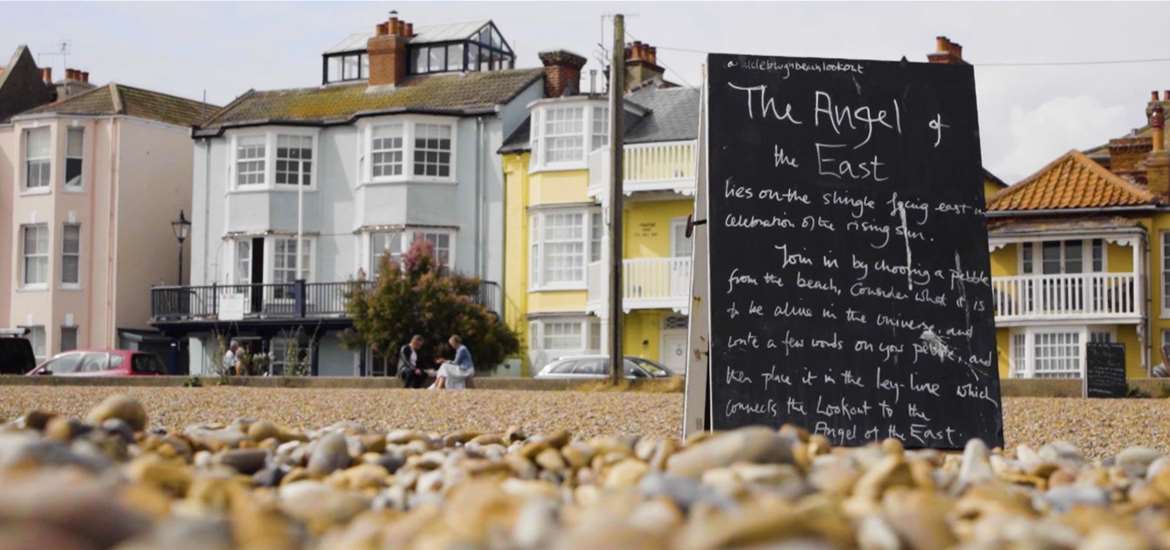 The Angel of
the East
lies on the shingle facing east in
celebration of the rising sun.
Join in by choosing a pebble
from the beach, Consider what it is
to be alive in the universe, and
write a few words on your pebble, and
then place it in the ley-line which
connects the Lookout to the
Angel of the East.